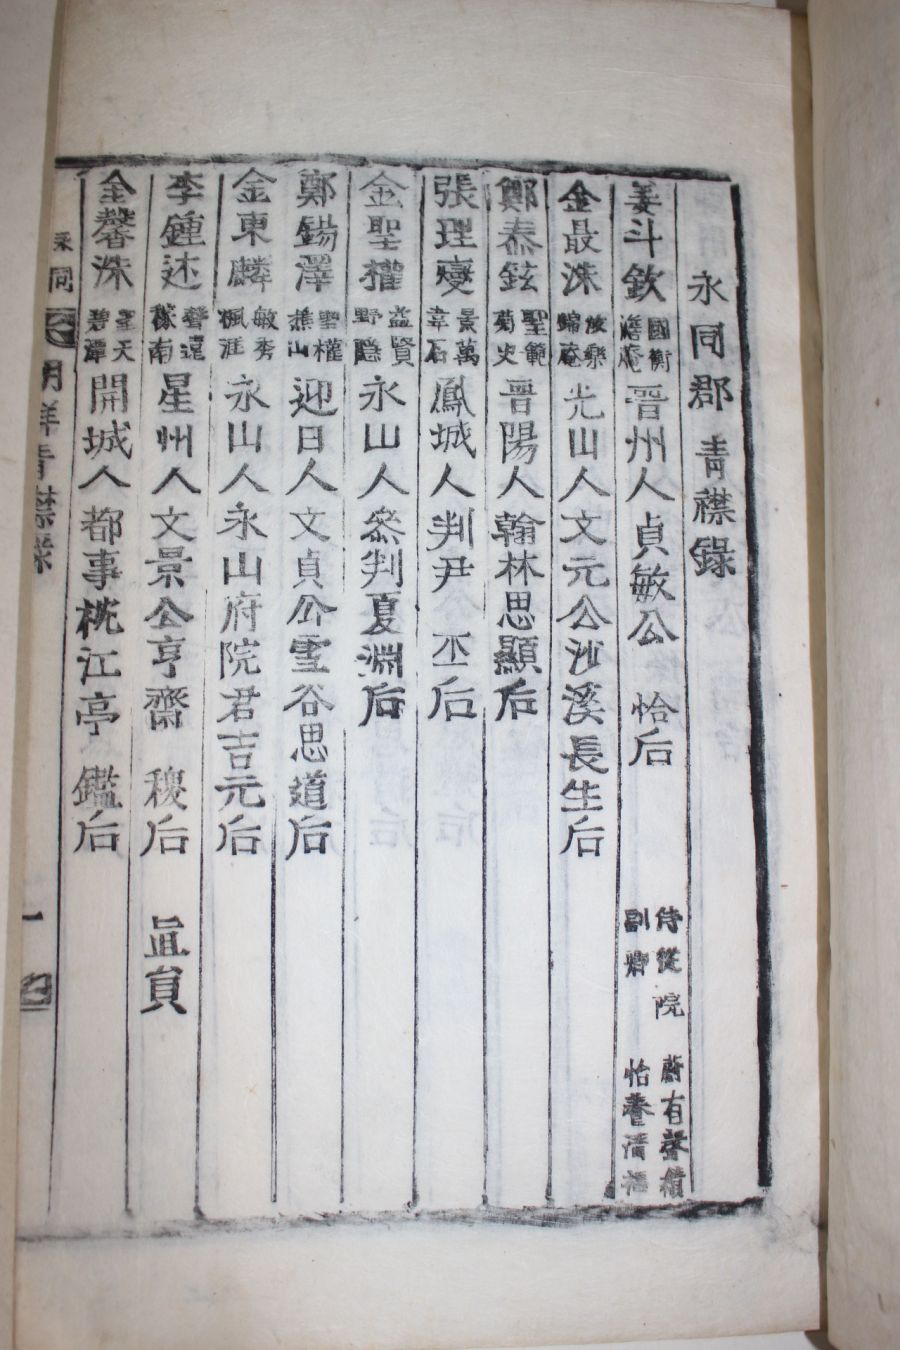 永同郡青襟錄
姜斗欽 國衡 澹庵 晋州人貞敏公 恰后 侍從院副卿 蔚有聲績 怡養清福
金最洙 錦庵 光山人文元公沙溪長生后
鄭泰鉉 聖範 菊史 晋陽人翰林思顯后
張理燮 景萬 韋石 鳳城人判尹 丕后
金聖權 益賢 野隱 永山人叅判夏淵后
鄭鍚澤 聖權 樵山 迎日人文貞公雪谷思道后
金東麟 敏秀 楓涯 永山人永山府院君吉元后
李鍾述 聲遠 稼南 星州人文景公亨齋 稷后 直員
金馨洙 聖天 碧潭 開城人都事桃江亭 鑑后
永同 朝鮮青襟錄 一